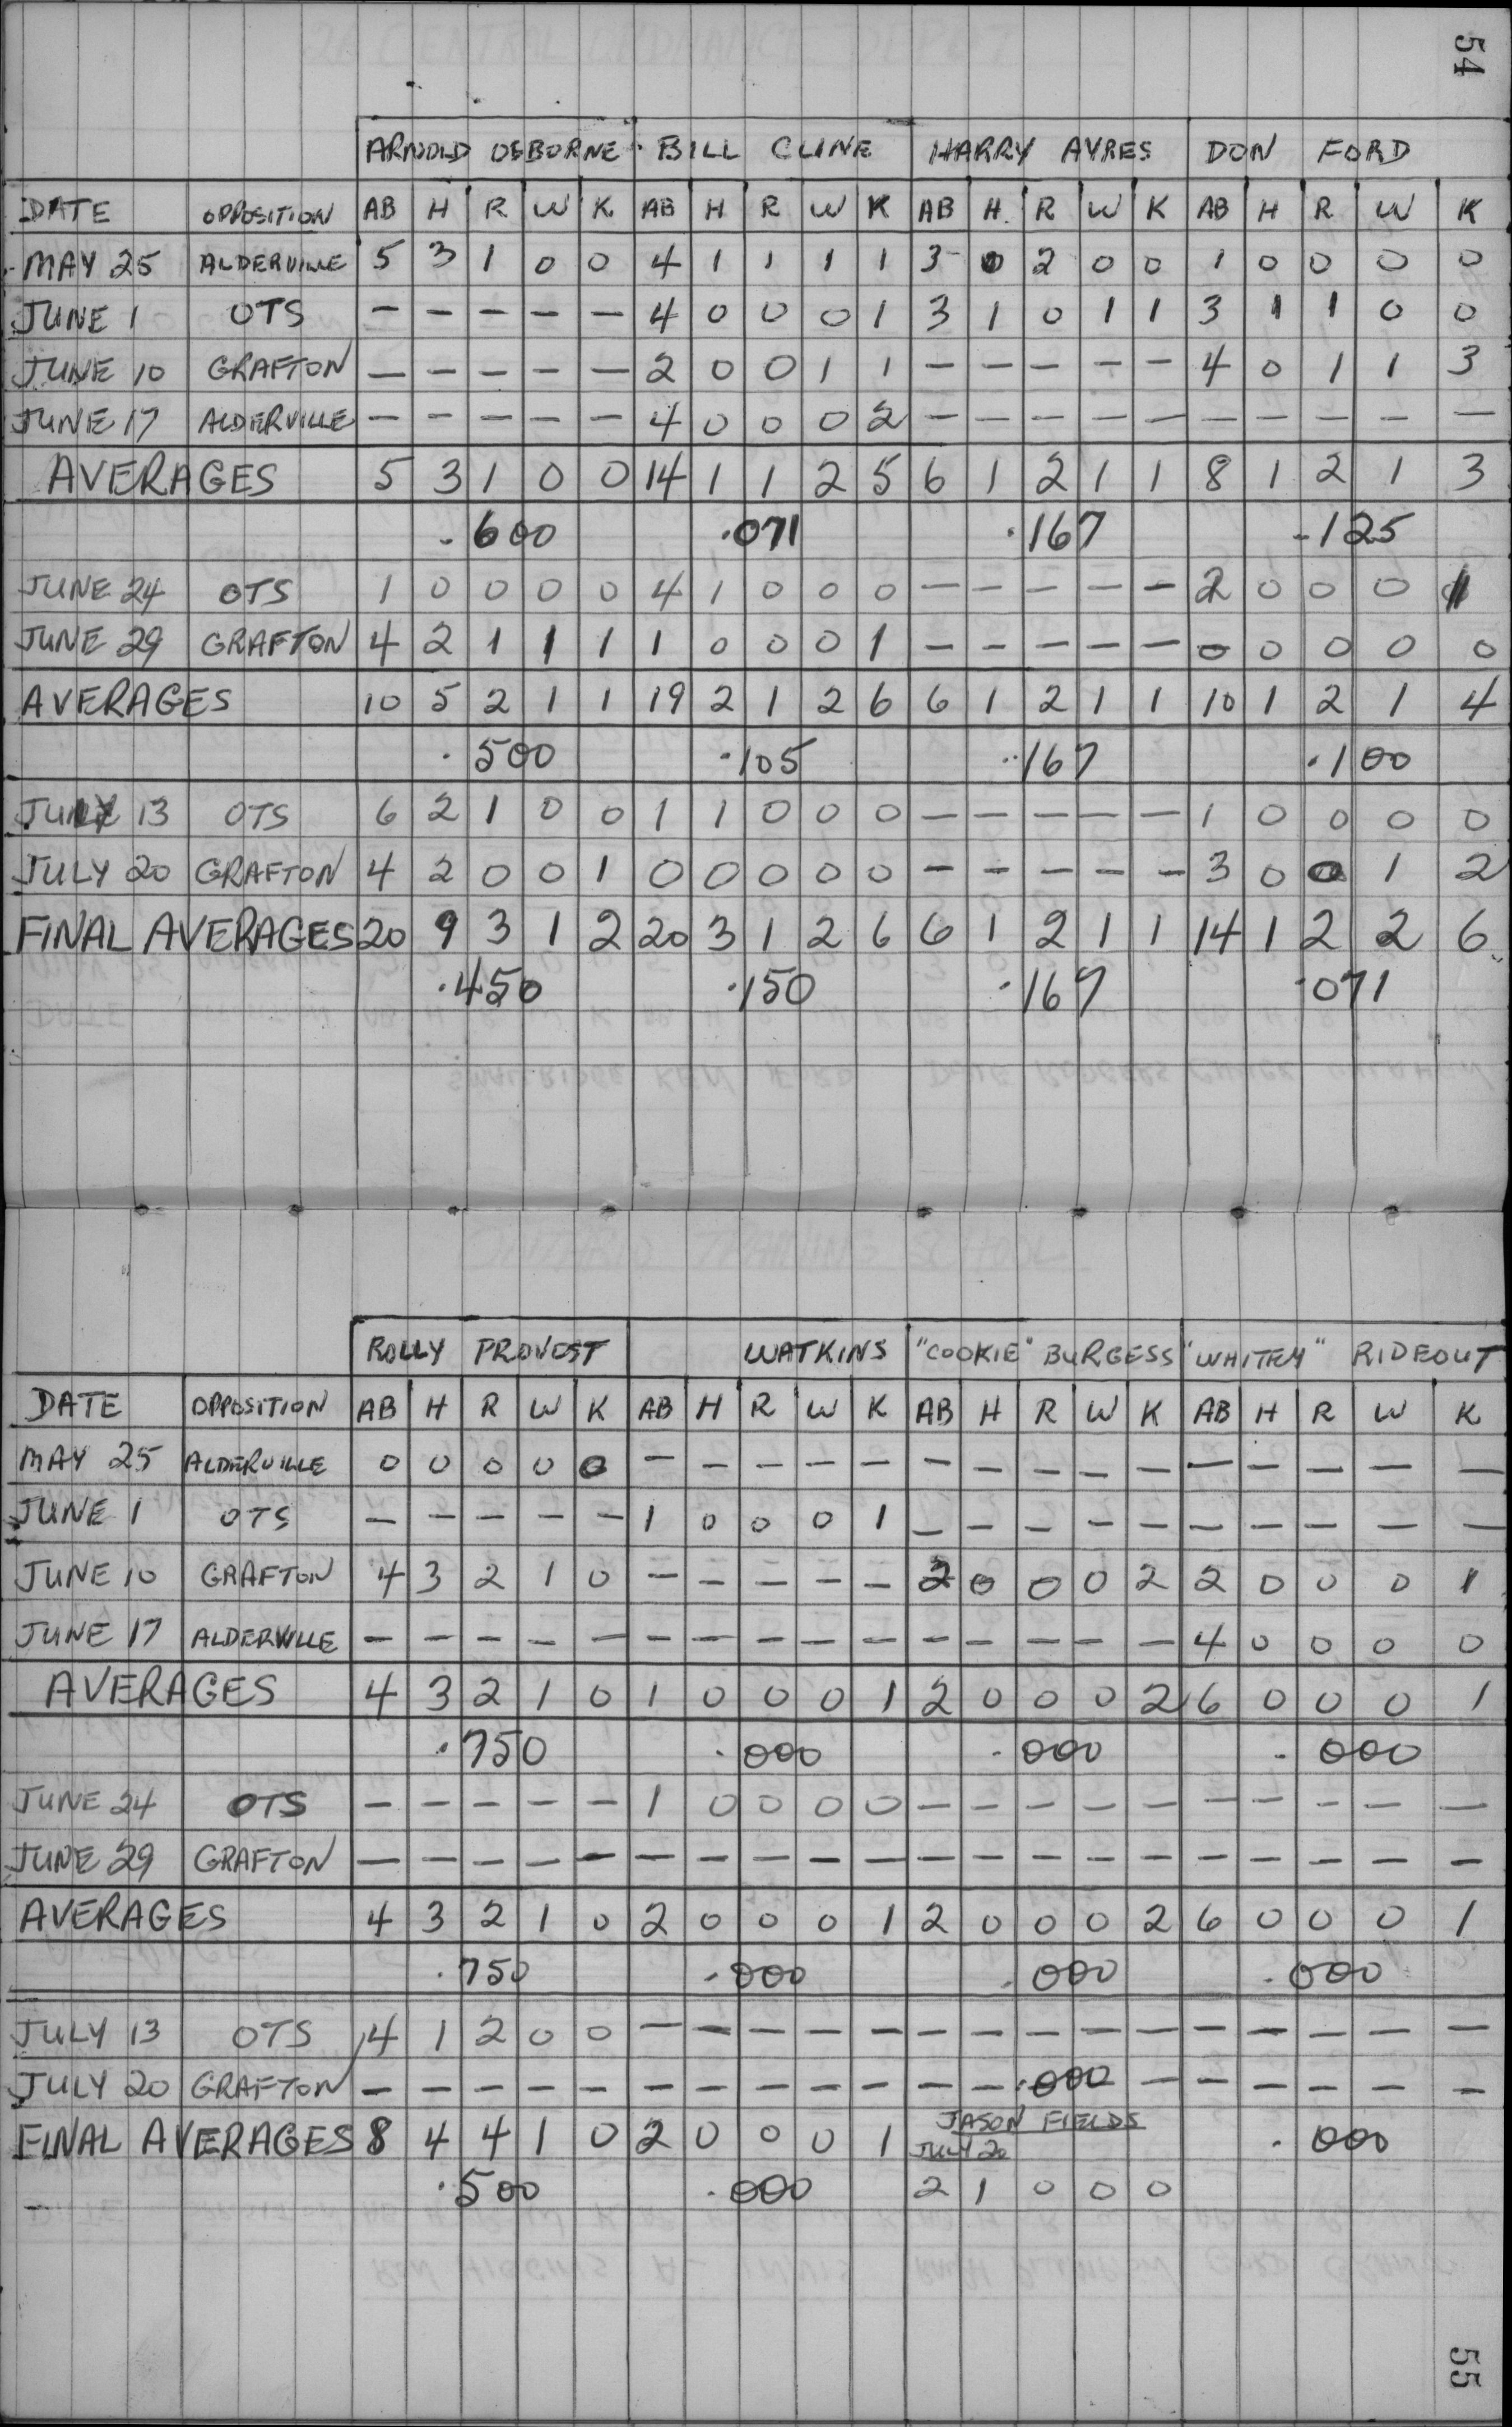 54
ARNOLD OSBORNE BILL CLINE HARRY AYRES DON FORD
DATE OPPOSITION AB H R W K AB H R W K AB H R W K AB H R W K
MAY 25 ALDERVILLE 5 3 1 0 0 4 1 1 1 1 3 0 2 0 0 1 0 0 0 0
JUNE 1 OTS - - - - - 4 0 0 0 1 3 1 0 1 1 3 1 1 0 0
JUNE 10 GRAFTON - - - - - 2 0 0 1 1 - - - - - 4 0 1 1 3
JUNE 17 ALDERVILLE - - - - - 4 0 0 0 2 - - - - - - - - - -
AVERAGES 5 3 1 0 0 14 1 1 2 5 6 1 2 1 1 8 1 2 1 3
.600 .071 .167 .125
JUNE 24 OTS 1 0 0 0 0 4 1 0 0 0 - - - - - 2 0 0 0 1
JUNE 29 GRAFTON 4 2 1 1 1 1 0 0 0 1 - - - - - 0 0 0 0 0
AVERAGES 10 5 2 1 1 19 2 1 2 6 6 1 2 1 1 10 1 2 1 4
.500 .105 .167 .100
JULY 13 OTS 6 2 1 0 0 1 1 0 0 0 - - - - - 1 0 0 0 0
JULY 20 GRAFTON 4 2 0 0 1 0 0 0 0 0 - - - - - 3 0 0 1 2
FINAL AVERAGES 20 9 3 1 2 20 3 1 2 6 6 1 2 1 1 14 1 2 2 6
.450 .150 .167 .071
ROLLY PROVOST WATKINS "COOKIE" BURGESS "WHITEY" RIDEOUT
DATE OPPOSITION AB H R W K AB H R W K AB H R W K AB H R W K
MAY 25 ALDERVILLE 0 0 0 0 0 - - - - - - - - - - - - - - -
JUNE 1 OTS - - - - - 1 0 0 0 1 - - - - - - - - - -
JUNE 10 GRAFTON 4 3 2 1 0 - - - - - 2 0 0 0 2 2 0 0 0 1
JUNE 17 ALDERVILLE - - - - - - - - - - - - - - - 4 0 0 0 0
AVERAGES 4 3 2 1 0 1 0 0 0 1 2 0 0 0 2 6 0 0 0 1
.750 .000 .000 .000
JUNE 24 OTS - - - - - 1 0 0 0 0 - - - - - - - - - -
JUNE 29 GRAFTON - - - - - - - - - - - - - - - - - - - -
AVERAGES 4 3 2 1 0 2 0 0 0 1 2 0 0 0 2 6 0 0 0 1
.750 .000 .000 .000
JULY 13 OTS 4 1 2 0 0 - - - - - - - - - - - - - - -
JULY 20 GRAFTON - - - - - - - - - - - - .000 - - - - - -
FINAL AVERAGES 8 4 4 1 0 2 0 0 0 1 JASON FIELDS .000
JULY 20
.500 .000 2 1 0 0 0
55